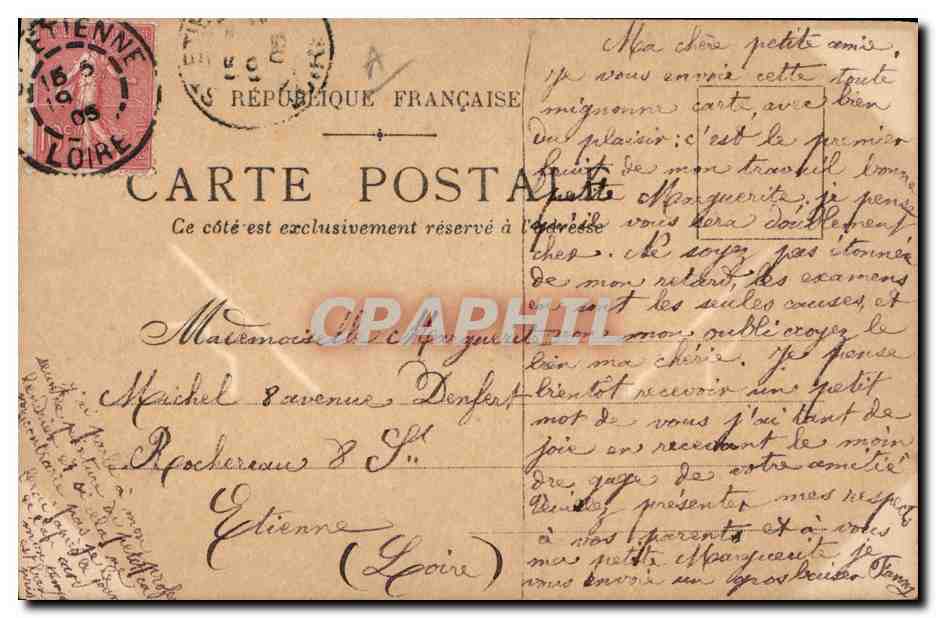 ETIENNE
15 5
19
05
LOIRE
RÉPUBLIQUE FRANÇAISE
CARTE POSTALE
Ce côté est exclusivement réservé à l'adresse
CPAPHIL
Mademoiselle Marguerite
Michel 8 avenue Denfert
Rochereau 8 St
Etienne
(Loire)
Ma chère petite amie.
Je vous envoie cette toute
mignonne carte, avec bien
du plaisir : c'est le premier
fruit de mon travail bonne
petite Marguerite, je pense
qu'il vous sera doublement
cher. Ne soyez pas étonnée
de mon retard, les examens
en sont les seules causes, et
non mon oubli croyez le
bien ma chérie. Je pense
bientôt recevoir un petit
mot de vous j'ai tant de
joie en recevant le moin
dre gage de votre amitié
Veuillez présenter mes respects
à vos parents et à vous
ma petite Marguerite je
vous envoie un gros baiser Fanny
J'ai parlé à mon prof